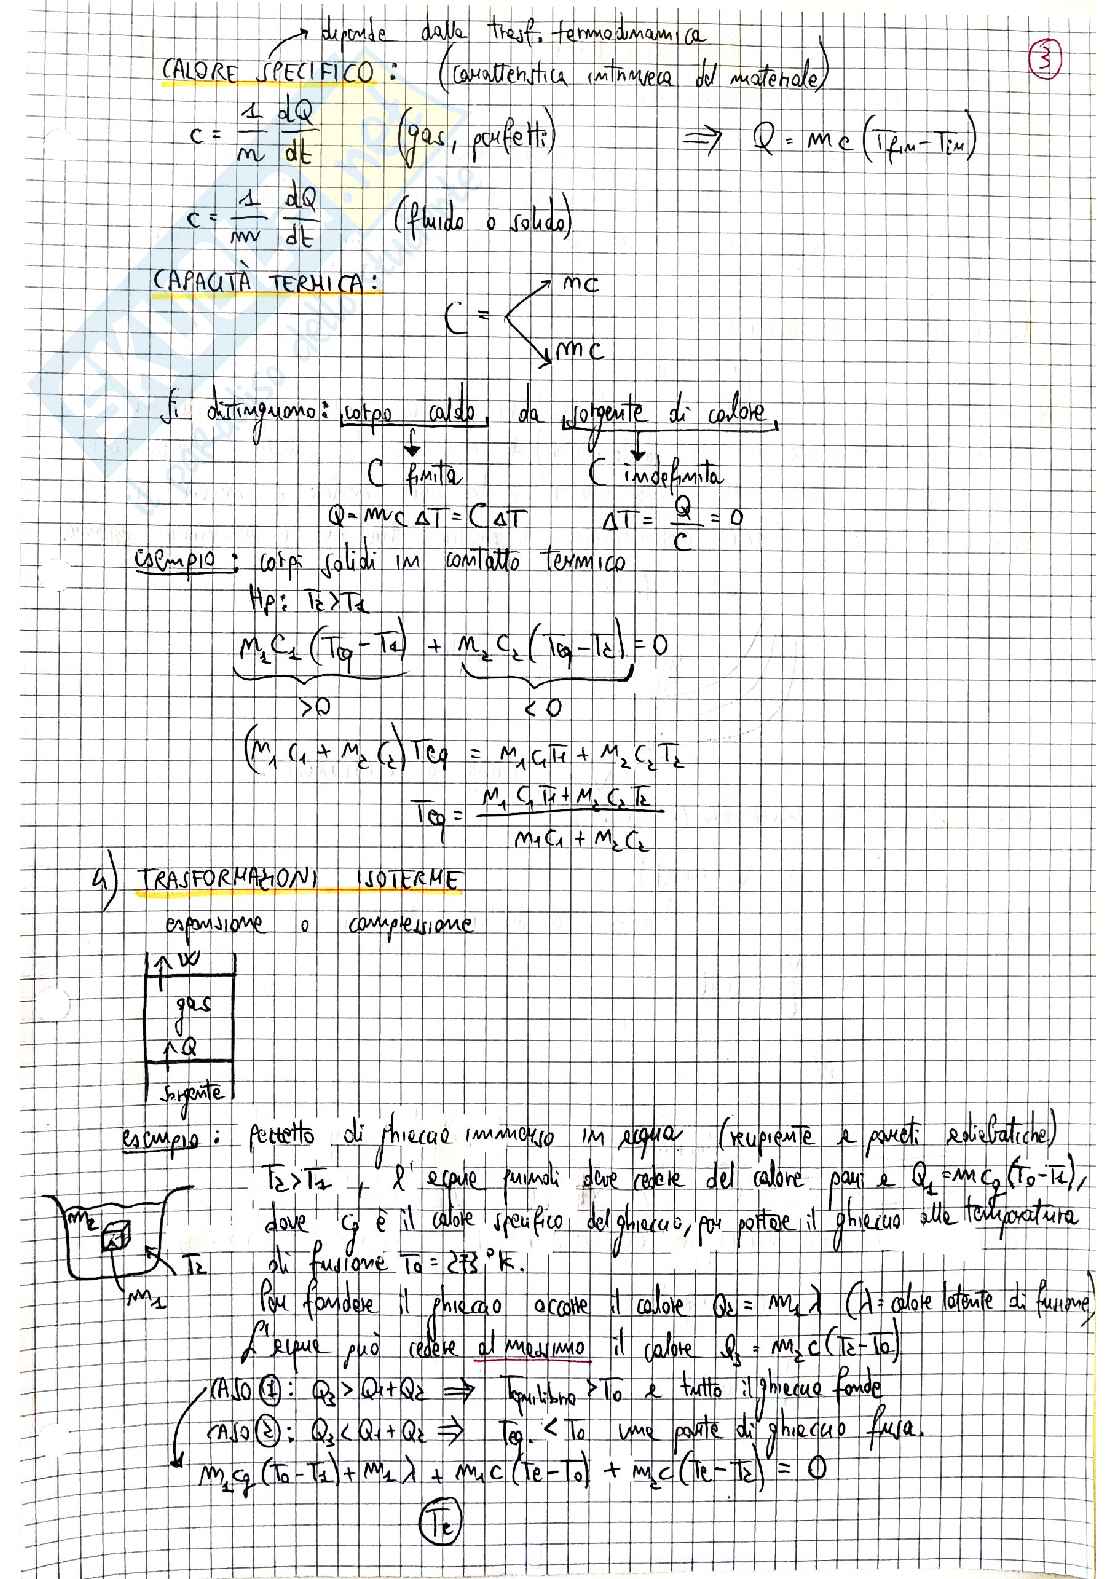 → dipende dalla trasf. termodinamica
③
CALORE SPECIFICO : (caratteristica intrinseca del materiale)
c = 1/n dQ/dt (gas, perfetti) ⇒ Q = mc (Tfin - Tin)
c = 1/m dQ/dt (fluido o solido)
CAPACITÀ TERMICA :
C = nc
mc
Si distinguono : corpo caldo da sorgente di calore
C finita C indefinita
Q = mc ΔT = C ΔT ΔT = Q/C = 0
esempio : corpi solidi in contatto termico
Hp: T2 > T1
m1 c1 (Teq - T1) + m2 c2 (Teq - T2) = 0
>0 <0
(m1 c1 + m2 c2) Teq = m1 c1 T1 + m2 c2 T2
Teq = m1 c1 T1 + m2 c2 T2 / m1 c1 + m2 c2
4) TRASFORMAZIONI ISOTERME
espansione o compressione
↑ W
gas
↑ Q
sorgente
esempio : pezzetto di ghiaccio immerso in acqua (recipiente e pareti adiabatiche)
T2 > T1 , l'acqua quindi deve cedere del calore pari a Q1 = m cg (T0 - T1),
dove cg è il calore specifico del ghiaccio, per portare il ghiaccio alla temperatura
di fusione T0 = 273,°K.
m2
T2
m1
Per fondere il ghiaccio occorre il calore Q2 = m1 λ (λ = calore latente di fusione)
L'acqua può cedere al massimo il calore Q3 = m2 c (T2 - T0)
CASO ① : Q3 > Q1 + Q2 ⇒ Tequilibrio > T0 e tutto il ghiaccio fonde
CASO ② : Q3 < Q1 + Q2 ⇒ Teq. < T0 una parte di ghiaccio fusa.
m1 cg (T0 - T1) + m1 λ + m1 c (Te - T0) + m2 c (Te - T2) = 0
Te